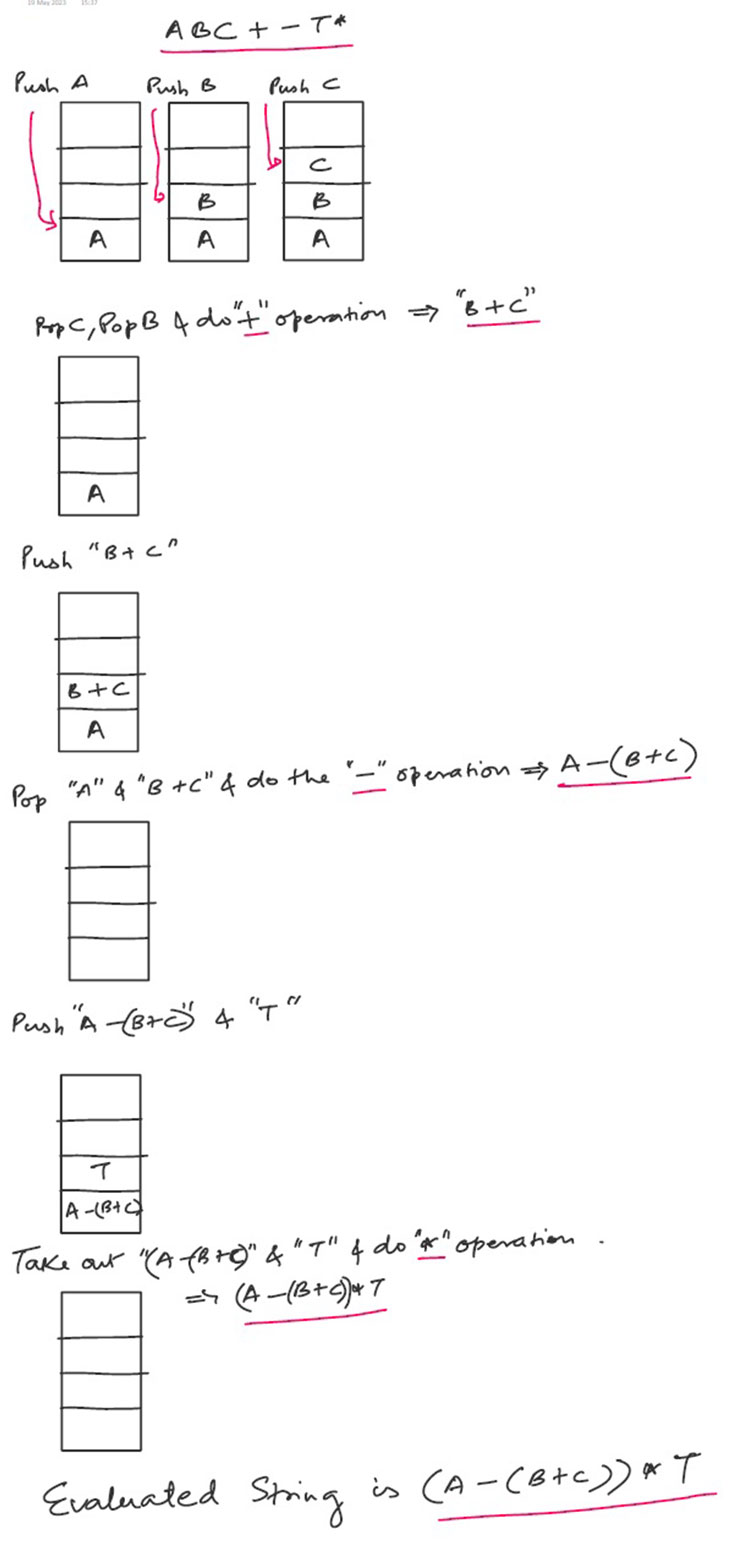 19 May 2023 15:37
ABC+-T*
Push A Push B Push C
C
B B
A A A
Pop C, Pop B & do "+" operation ⇒ "B+C"
A
Push "B+C"
B+C
A
Pop "A" & "B+C" & do the "-" operation ⇒ A-(B+C)
Push "A-(B+C)" & "T"
T
A-(B+C)
Take out "(A-(B+C)" & "T" & do "*" operation.
⇒ (A-(B+C))*T
Evaluated String is (A-(B+C))*T